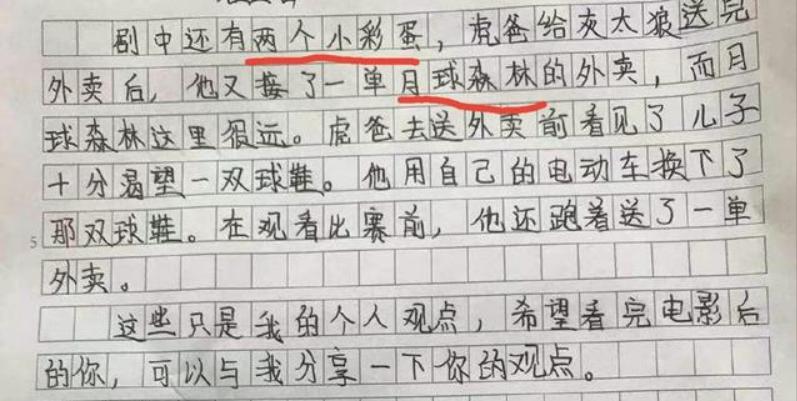 剧中还有两个小彩蛋，虎爸给灰太狼送完
外卖后，他又接了一单月球森林的外卖，而月
球森林这里很远。虎爸去送外卖前看见了儿子
十分渴望一双球鞋。他用自己的电动车换下了
5 那双球鞋。在观看比赛前，他还跑着送了一单
外卖。
这些只是我的个人观点，希望看完电影后
的你，可以与我分享一下你的观点。